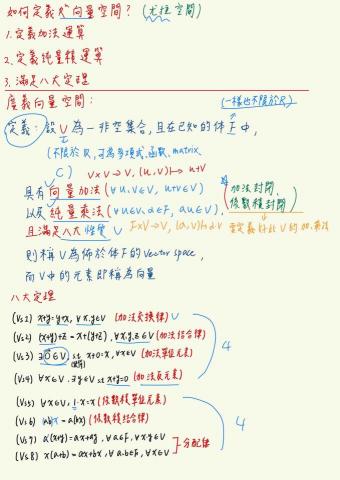 如何定義 向量空間? (尤拉空間)
1.定義加法運算
2.定義純量積運算
3.滿足八大定理
廣義向量空間:
(一樣也不限於R)
定義:設V為一非空集合,且在已知的体F中,
(不限於R,可為多項式、函數、matrix
V×V→V, (u,v)↦u+v
具有向量加法(∀u,v∈V, u+v∈V)
(加法封閉、係數積封閉)
以及純量乘法(∀u∈V,α∈F, αu∈V),
且滿足八大性質
F×V→V, (α,v)↦αv
則稱V為佈於体F的Vector space,
而V中的元素即稱為向量
八大定理
(Vs1) x+y=y+x, ∀x,y∈V (加法交換律)
(Vs2) (x+y)+z=x+(y+z), ∀x,y,z∈V (加法結合律)
(Vs3) ∃0∈V, s.t. x+0=x, ∀x∈V (加法單位元素)
(Vs4) ∀x∈V, ∃y∈V s.t. x+y=0 (加法反元素)
4
(Vs5) ∀x∈V, 1·x=x (係數積單位元素)
(Vs6) (ab)x=a(bx) (係數積結合律)
4
(Vs7) a(x+y)=ax+ay, ∀a∈F, ∀x,y∈V
(Vs8) x(a+b)=ax+bx, ∀a,b∈F, ∀x∈V
分配律